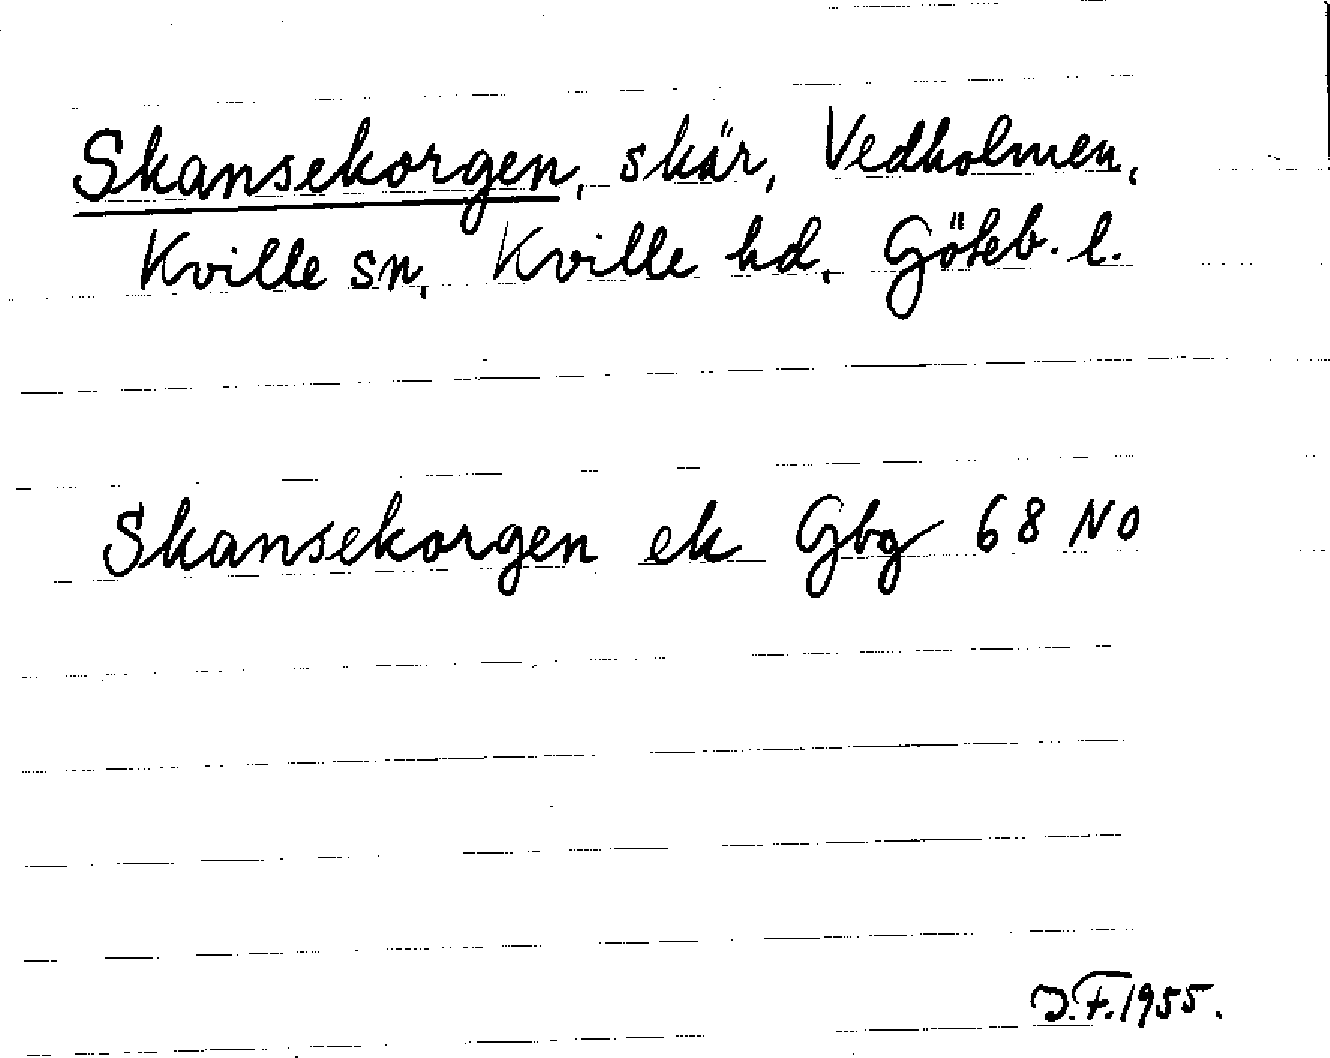 Skansekorgen, skär, Vedholmen,
Kville sn, Kville hd, Göteb. l.
Skansekorgen ek Gbg 68 NO
D.F. 1955.